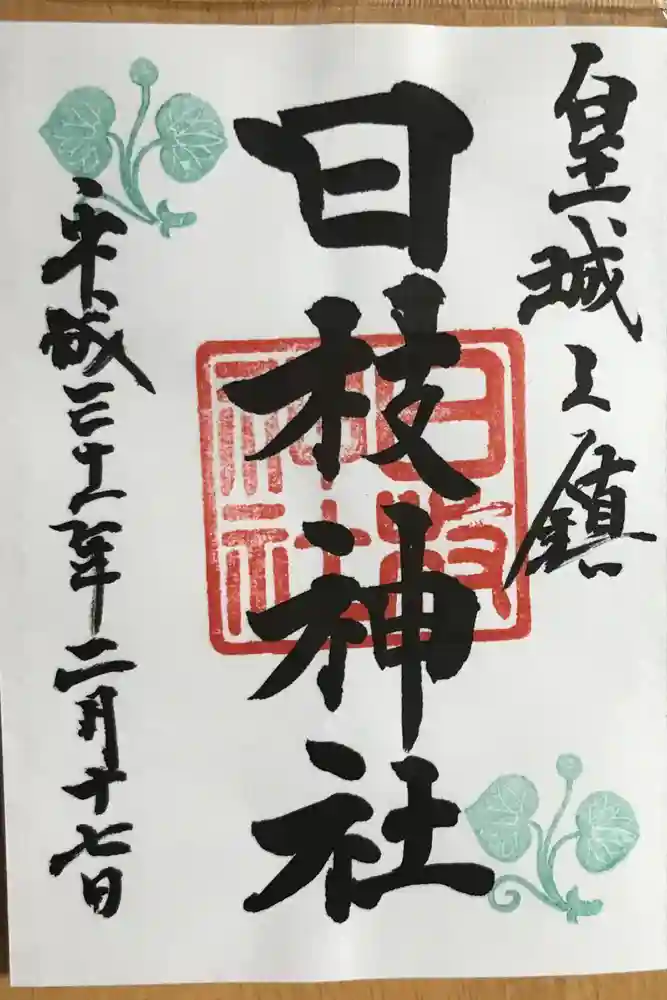 皇城之鎮
日枝神社
日枝神社
平成三十一年二月十七日